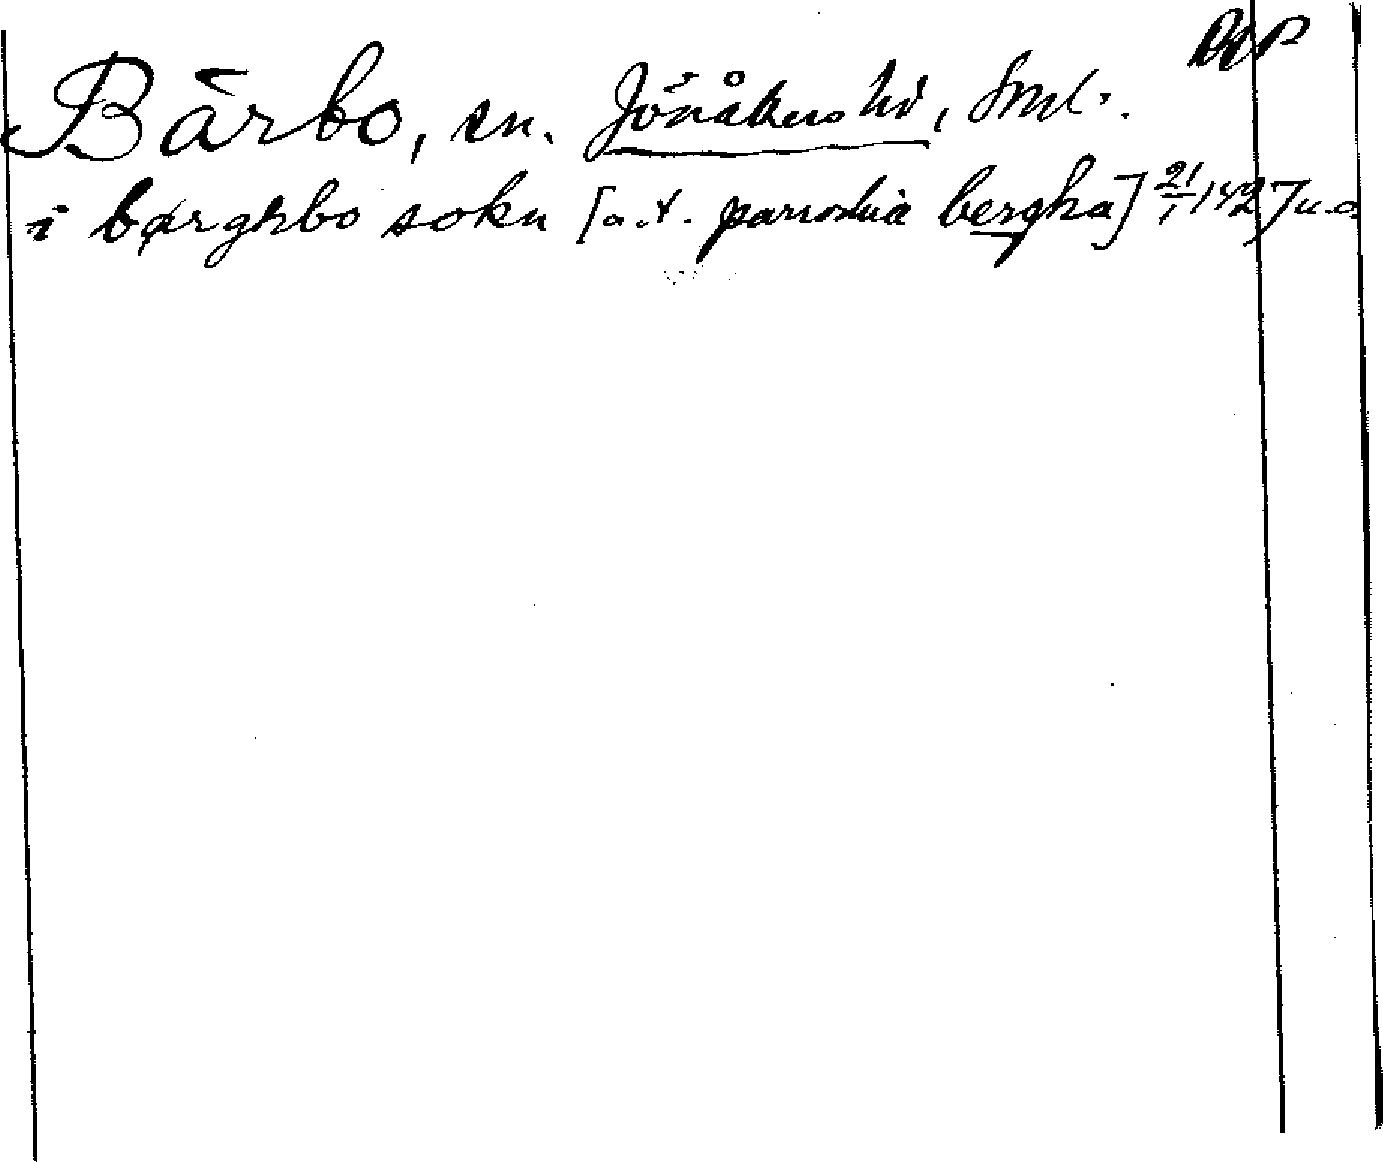 RAP
Bärbo, sn. Jönåkers hd, Sml.
i bærghbo sokn [a.t. parrochia bergha] 21/1 1427 u.a.